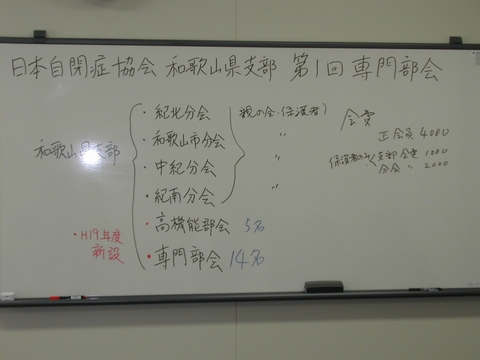 日本自閉症協会 和歌山県支部 第1回 専門部会
和歌山県支部
・紀北分会
・和歌山市分会
・中紀分会
・紀南分会
・高機能部会 5名
・専門部会 14名
親の会・保護者)
〃
〃
〃
会費
正会員 4000
保護者のみ
支部会費 1000
〃 2000
・H19年度
新設